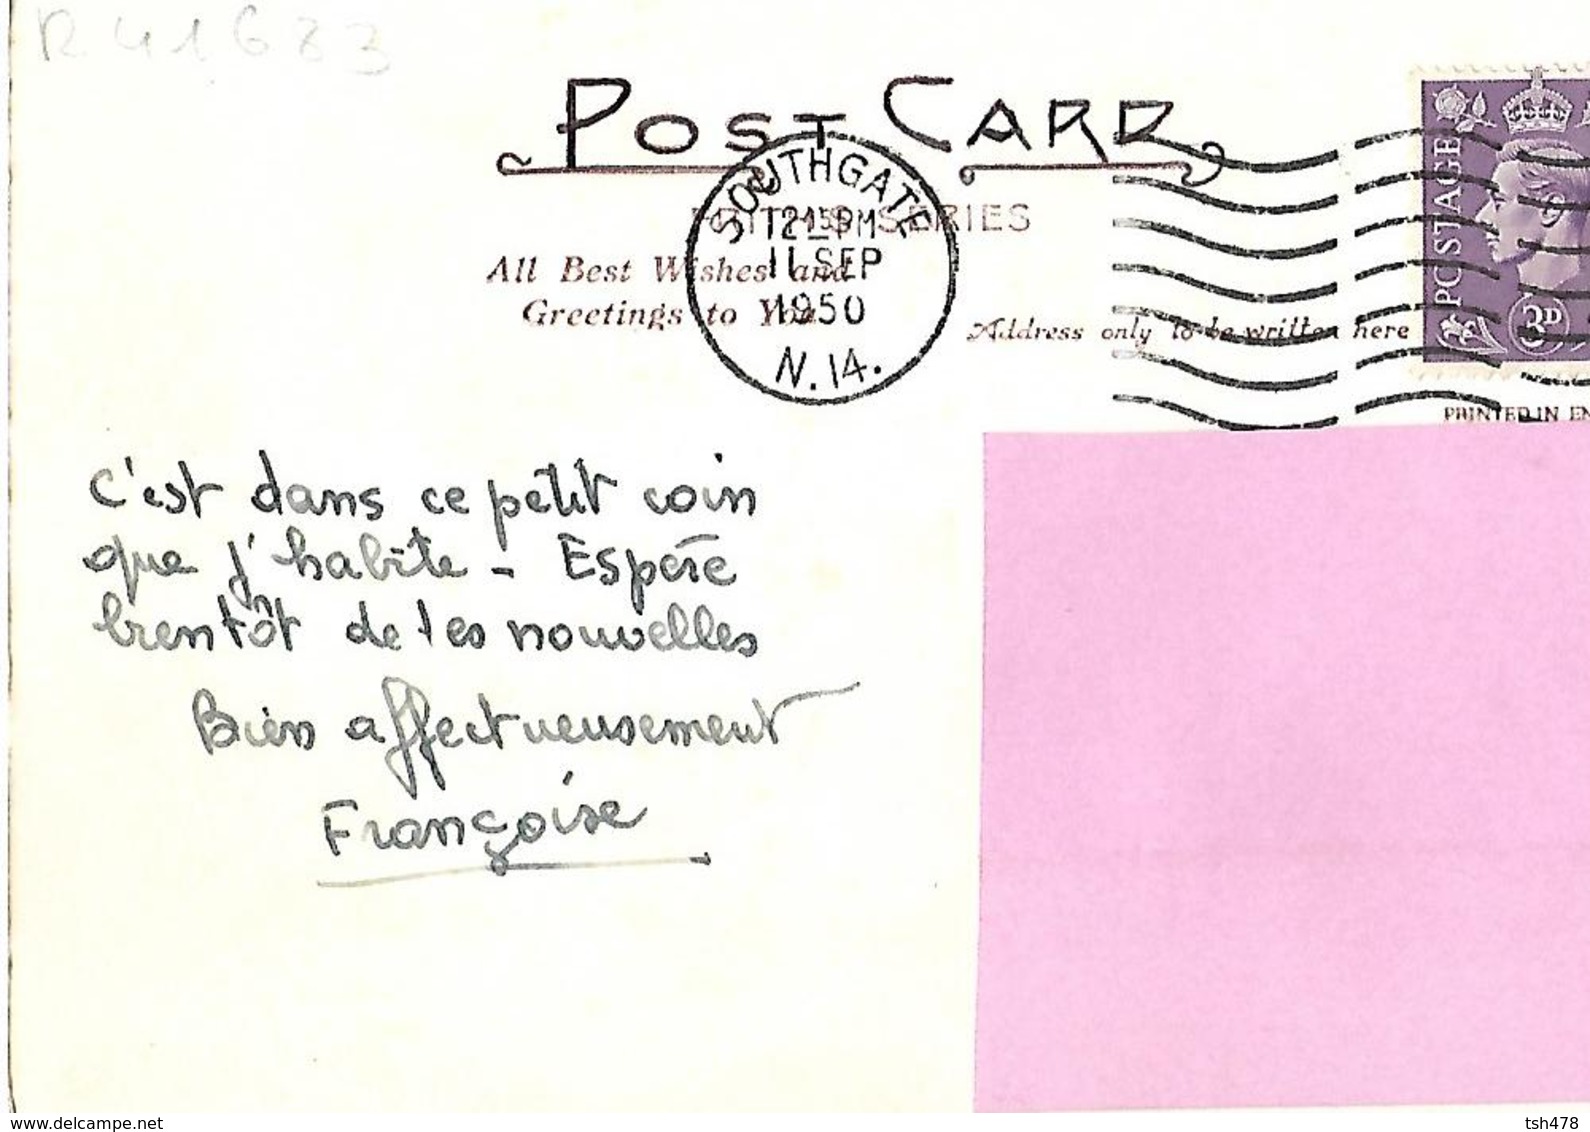 R41683
POST CARD
SERIES
SOUTHGATE
1215 PM
11 SEP
1950
N. 14.
All Best Wishes and
Greetings to You
Address only to be written here
POSTAGE
3D
PRINTED IN EN
C'est dans ce petit coin
que j'habite - Espère
bientôt de tes nouvelles
Bien affectueusement
Françoise
www.delcampe.net
tsh478